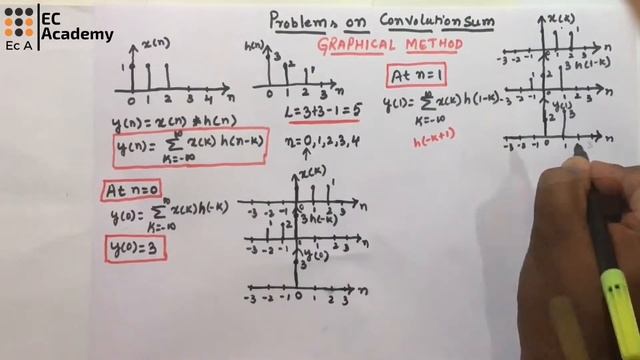 EC
Academy
EC A
Problems on Convolution Sum
GRAPHICAL METHOD
x(n)
1
0 1 2 3 4 n
h(n)
3
2
1
0 1 2 3 n
L=3+3-1=5
y(n)=x(n)*h(n)
y(n)=∑x(k)h(n-k)
k=-∞
n=0,1,2,3,4
At n=0
y(0)=∑x(k)h(-k)
k=-∞
y(0)=3
x(k)
1
-3 -2 -1 0 1 2 3 n
3 h(-k)
2
1
-3 -2 -1 1 2 3 n
y(0)
3
-3 -2 -1 0 1 2 3 n
At n=1
y(1)=∑x(k)h(1-k)
k=-∞
h(-k+1)
x(k)
1
-3 -2 -1 1 2 3 n
3 h(1-k)
2
1
-3 -2 -1 1 2 3 n
y(1)
2 3
-3 -2 -1 0 1 n